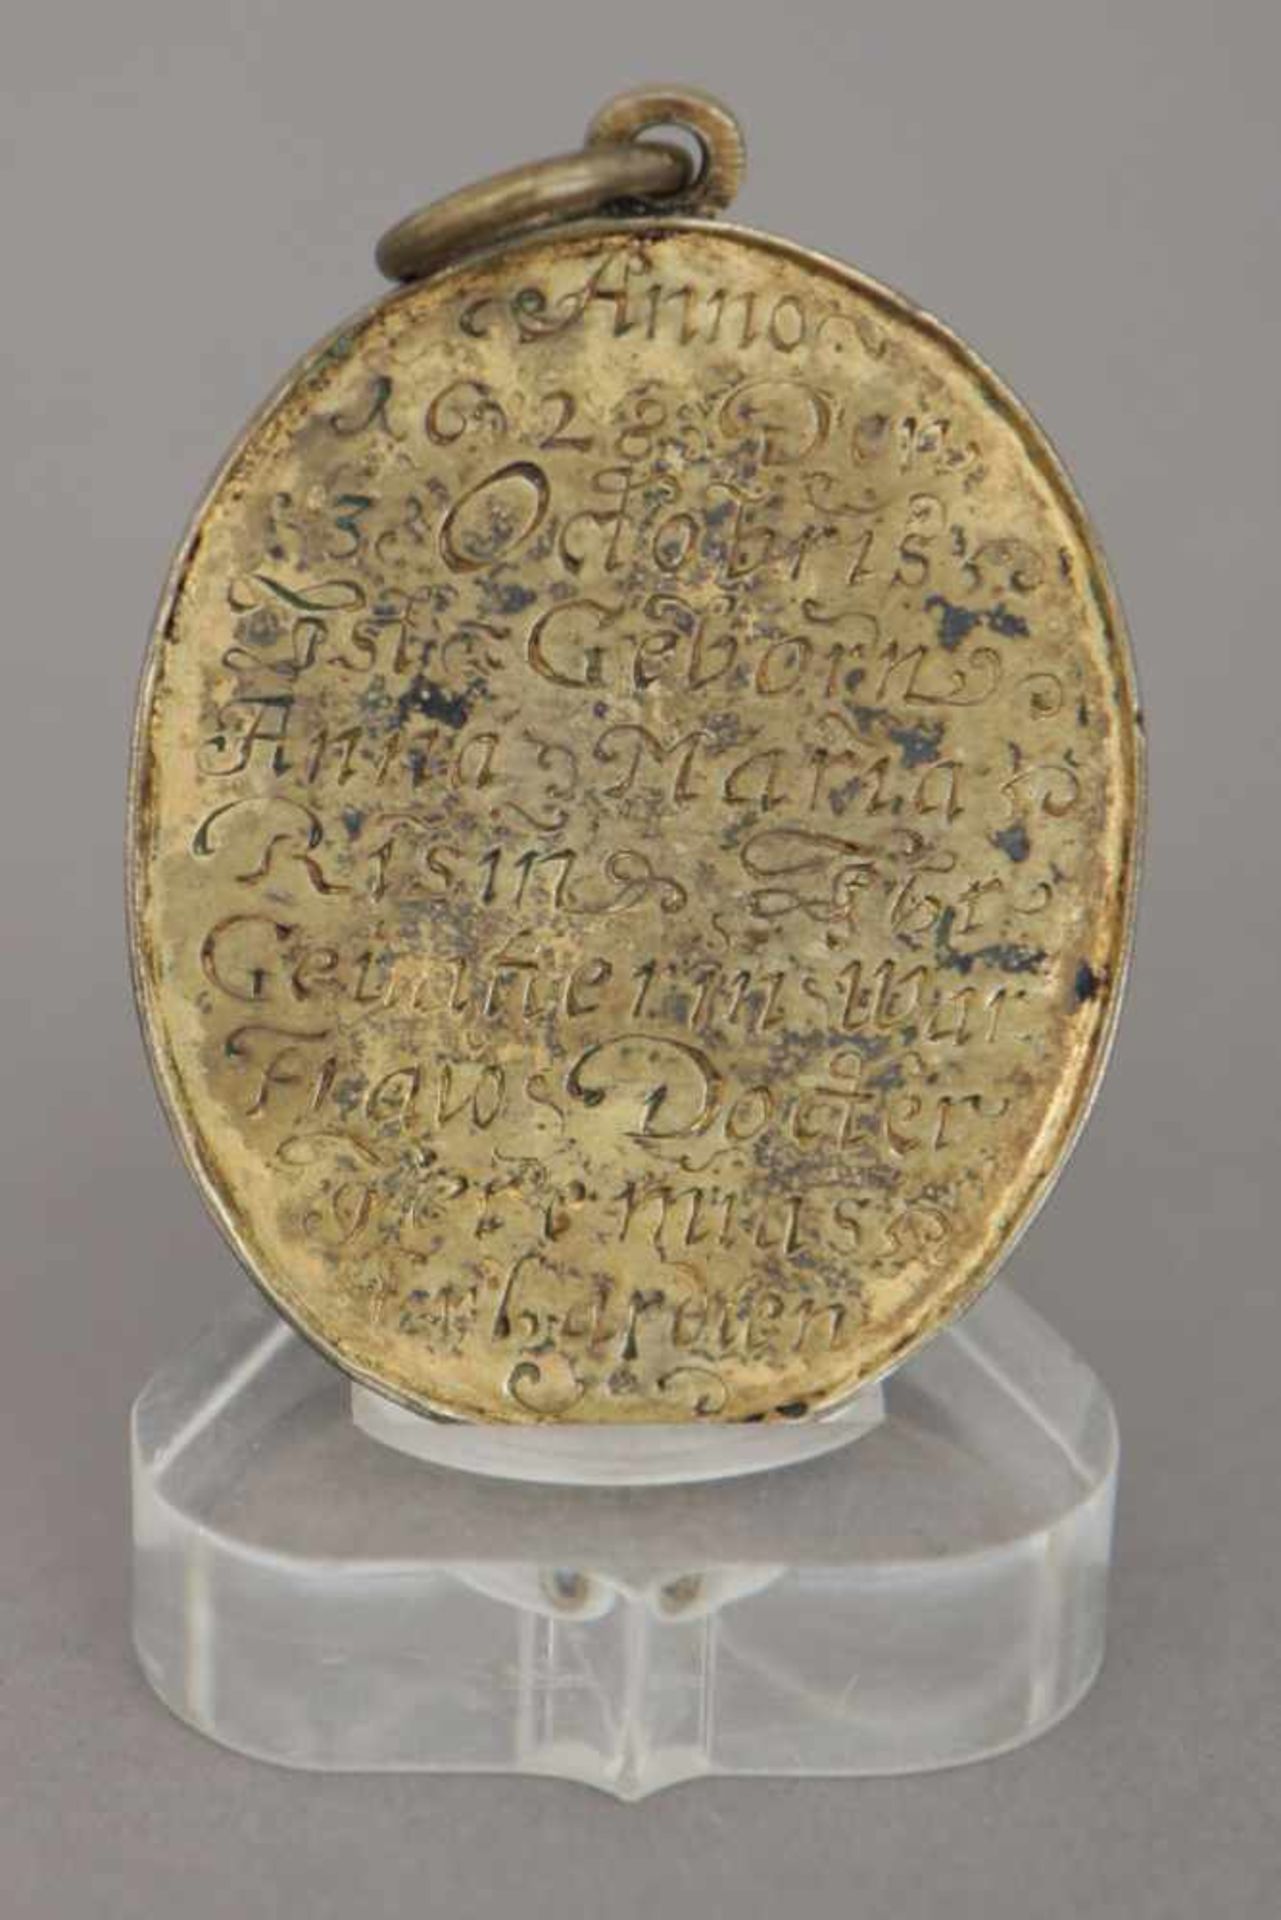 Anno
1628 Den
3 Octobris
Ist Geborn
Anna Maria
Risin Ihr
Gevatterin war
Fraw Docter
Jeremias